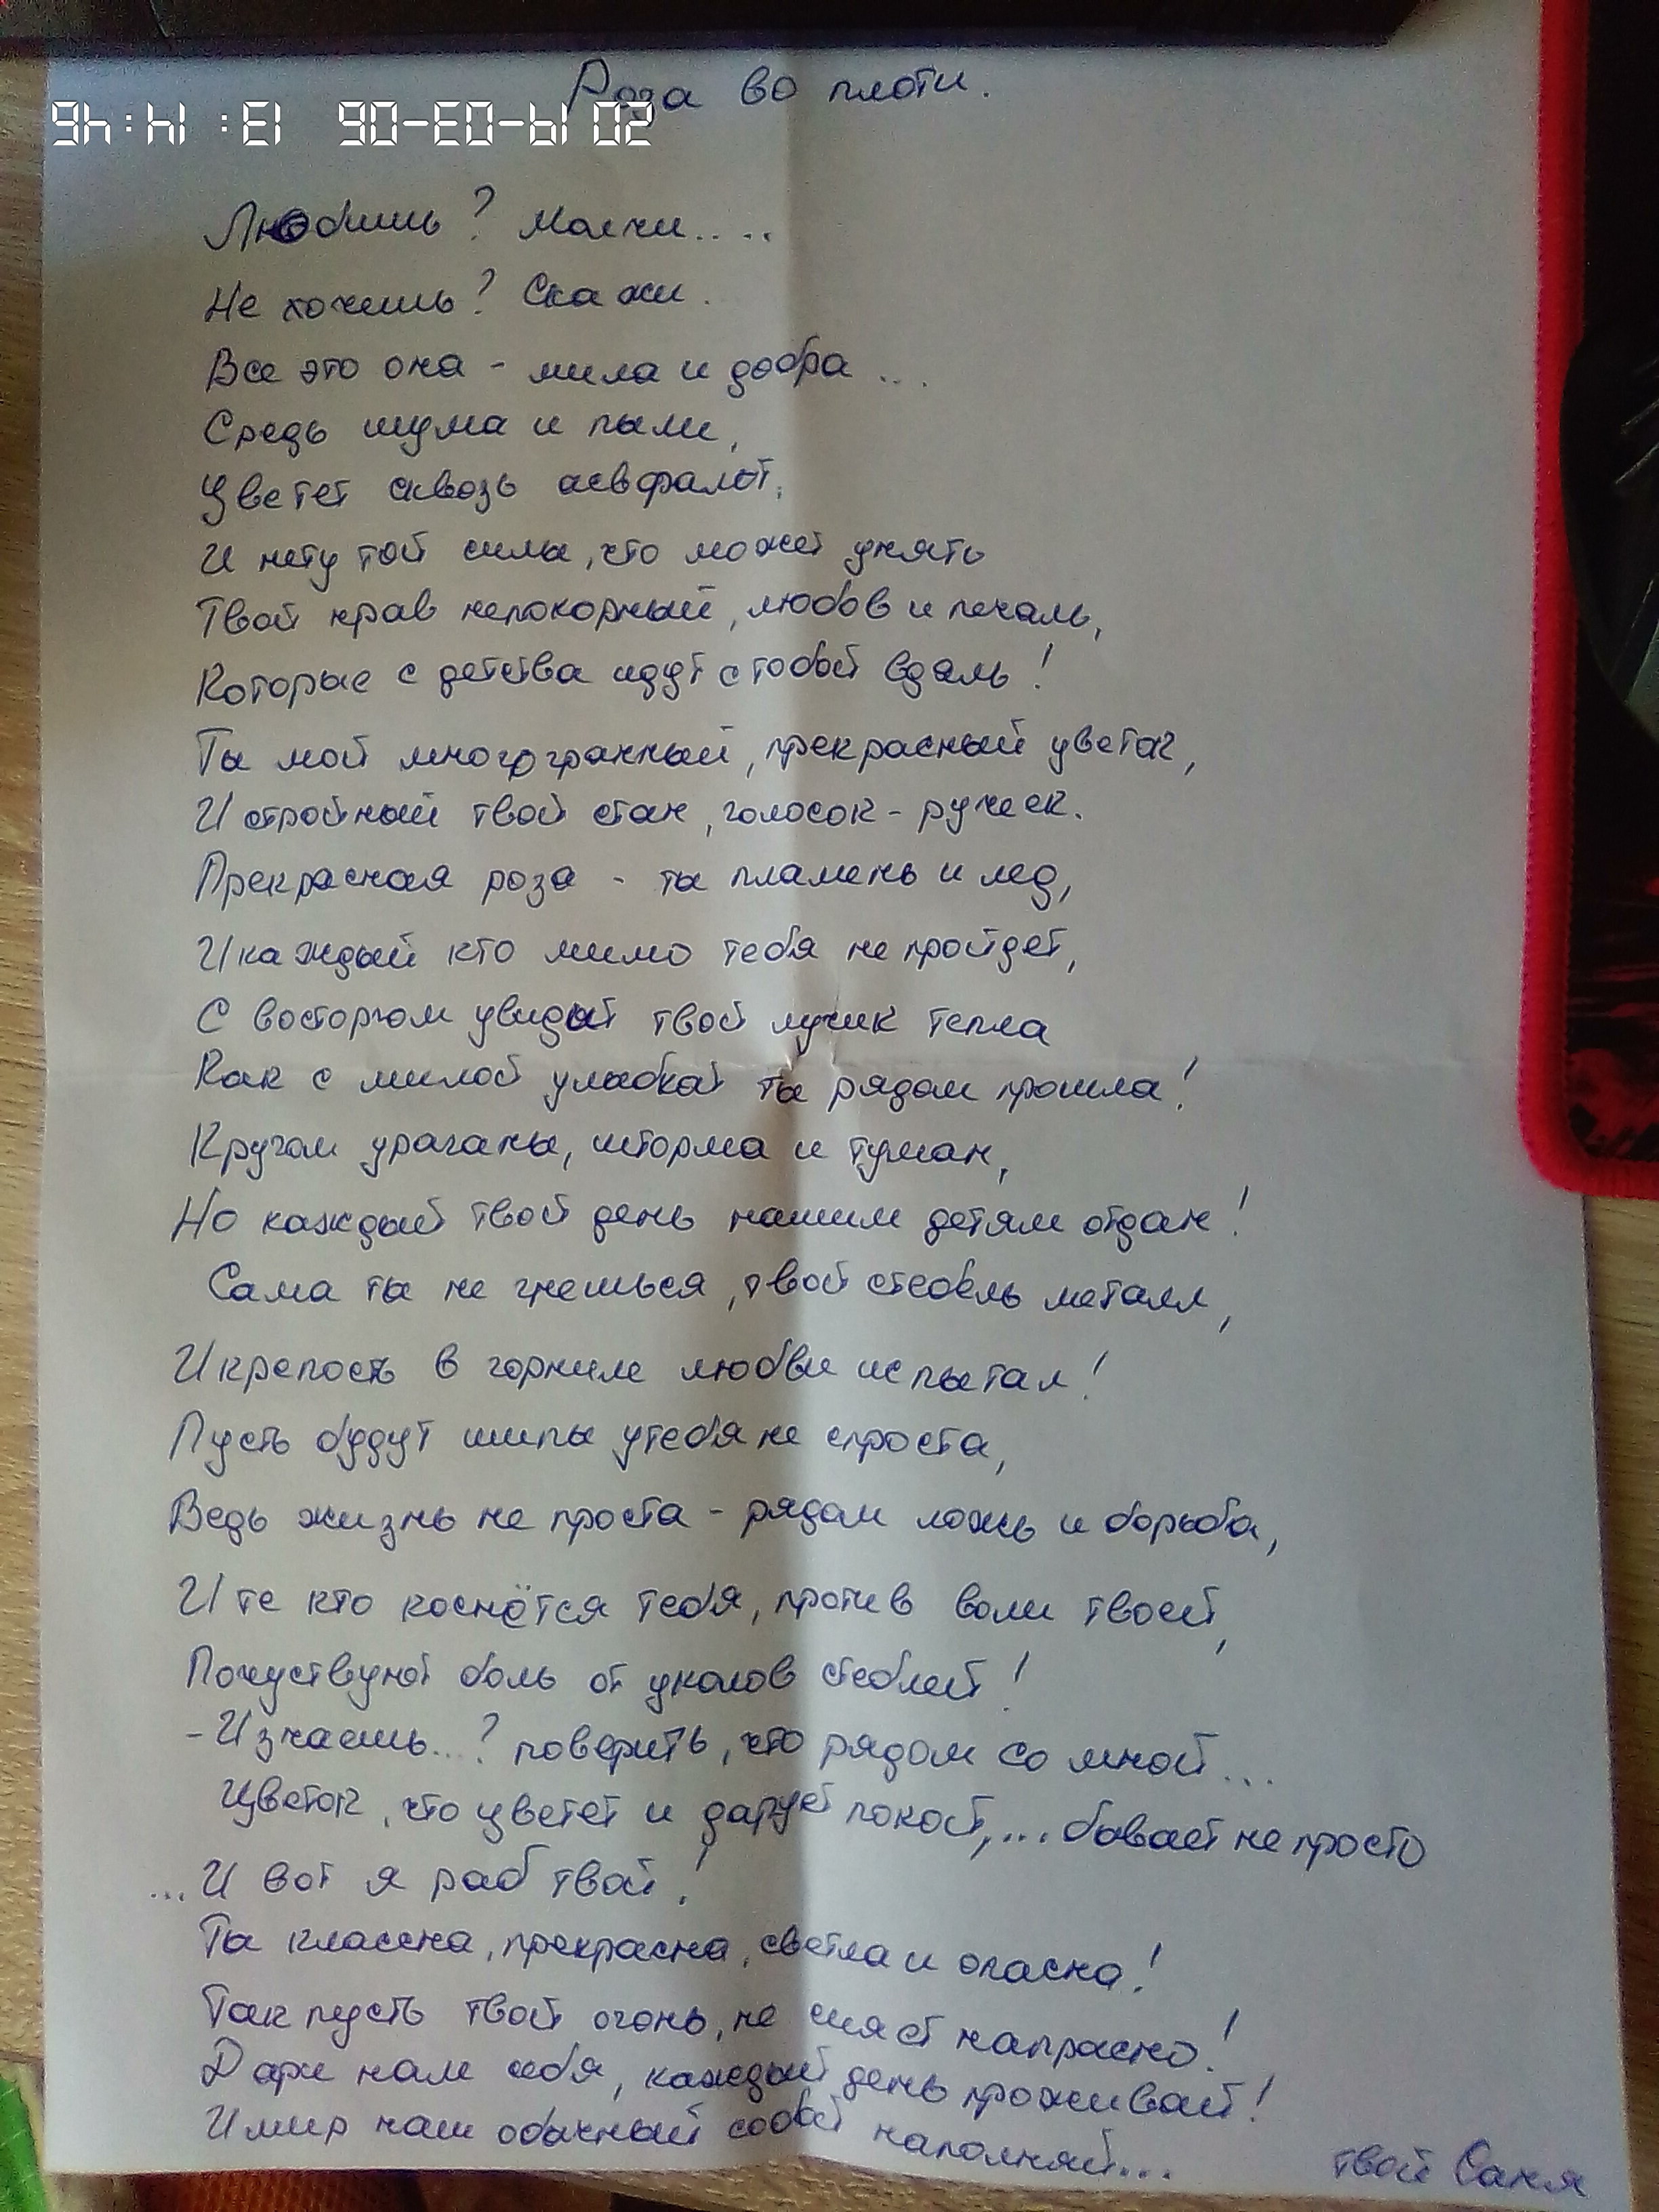 Роза во плоти.
2019-03-06 13:14:46
Любишь? Молчи.....
Не хочешь? Скажи.
Все это она - мила и добра ...
Средь шума и пыли,
Цветет сквозь асвфальт,
И нету той силы, что может унять
Твой нрав непокорный, любов и печаль,
Которые с детства идут с тобой вдаль!
Ты мой многогранный, прекрасный цветок,
И стройный твой стан, голосок - ручеек.
Прекрасная роза - ты пламень и лед,
И каждый кто мимо тебя не пройдет,
С восторгом увидит твой лучик тепла
Как с милой улыбкой ты рядом прошла!
Кругом ураганы, шторма и туман,
Но каждый твой день нашим детям отдан!
Сама ты не гнешься, твой стебель металл,
И крепость в горниле любви испытал!
Пусть будут шипы у тебя не спроста,
Ведь жизнь не проста - рядом ложь и борьба,
И те кто коснётся тебя, против воли твоей,
Почуствуют боль от уколов стеблей!
- И знаешь...? поверить, что рядом со мной...
Цветок, что цветет и дарует покой,... бывает не просто
...И вот я раб твой!
Ты классна, прекрасна, светла и опасна!
Так пусть твой огонь, не сияет напрасно!
Дари нам себя, каждый день проживай!
И мир наш обычный собой наполняй...
твой Саня